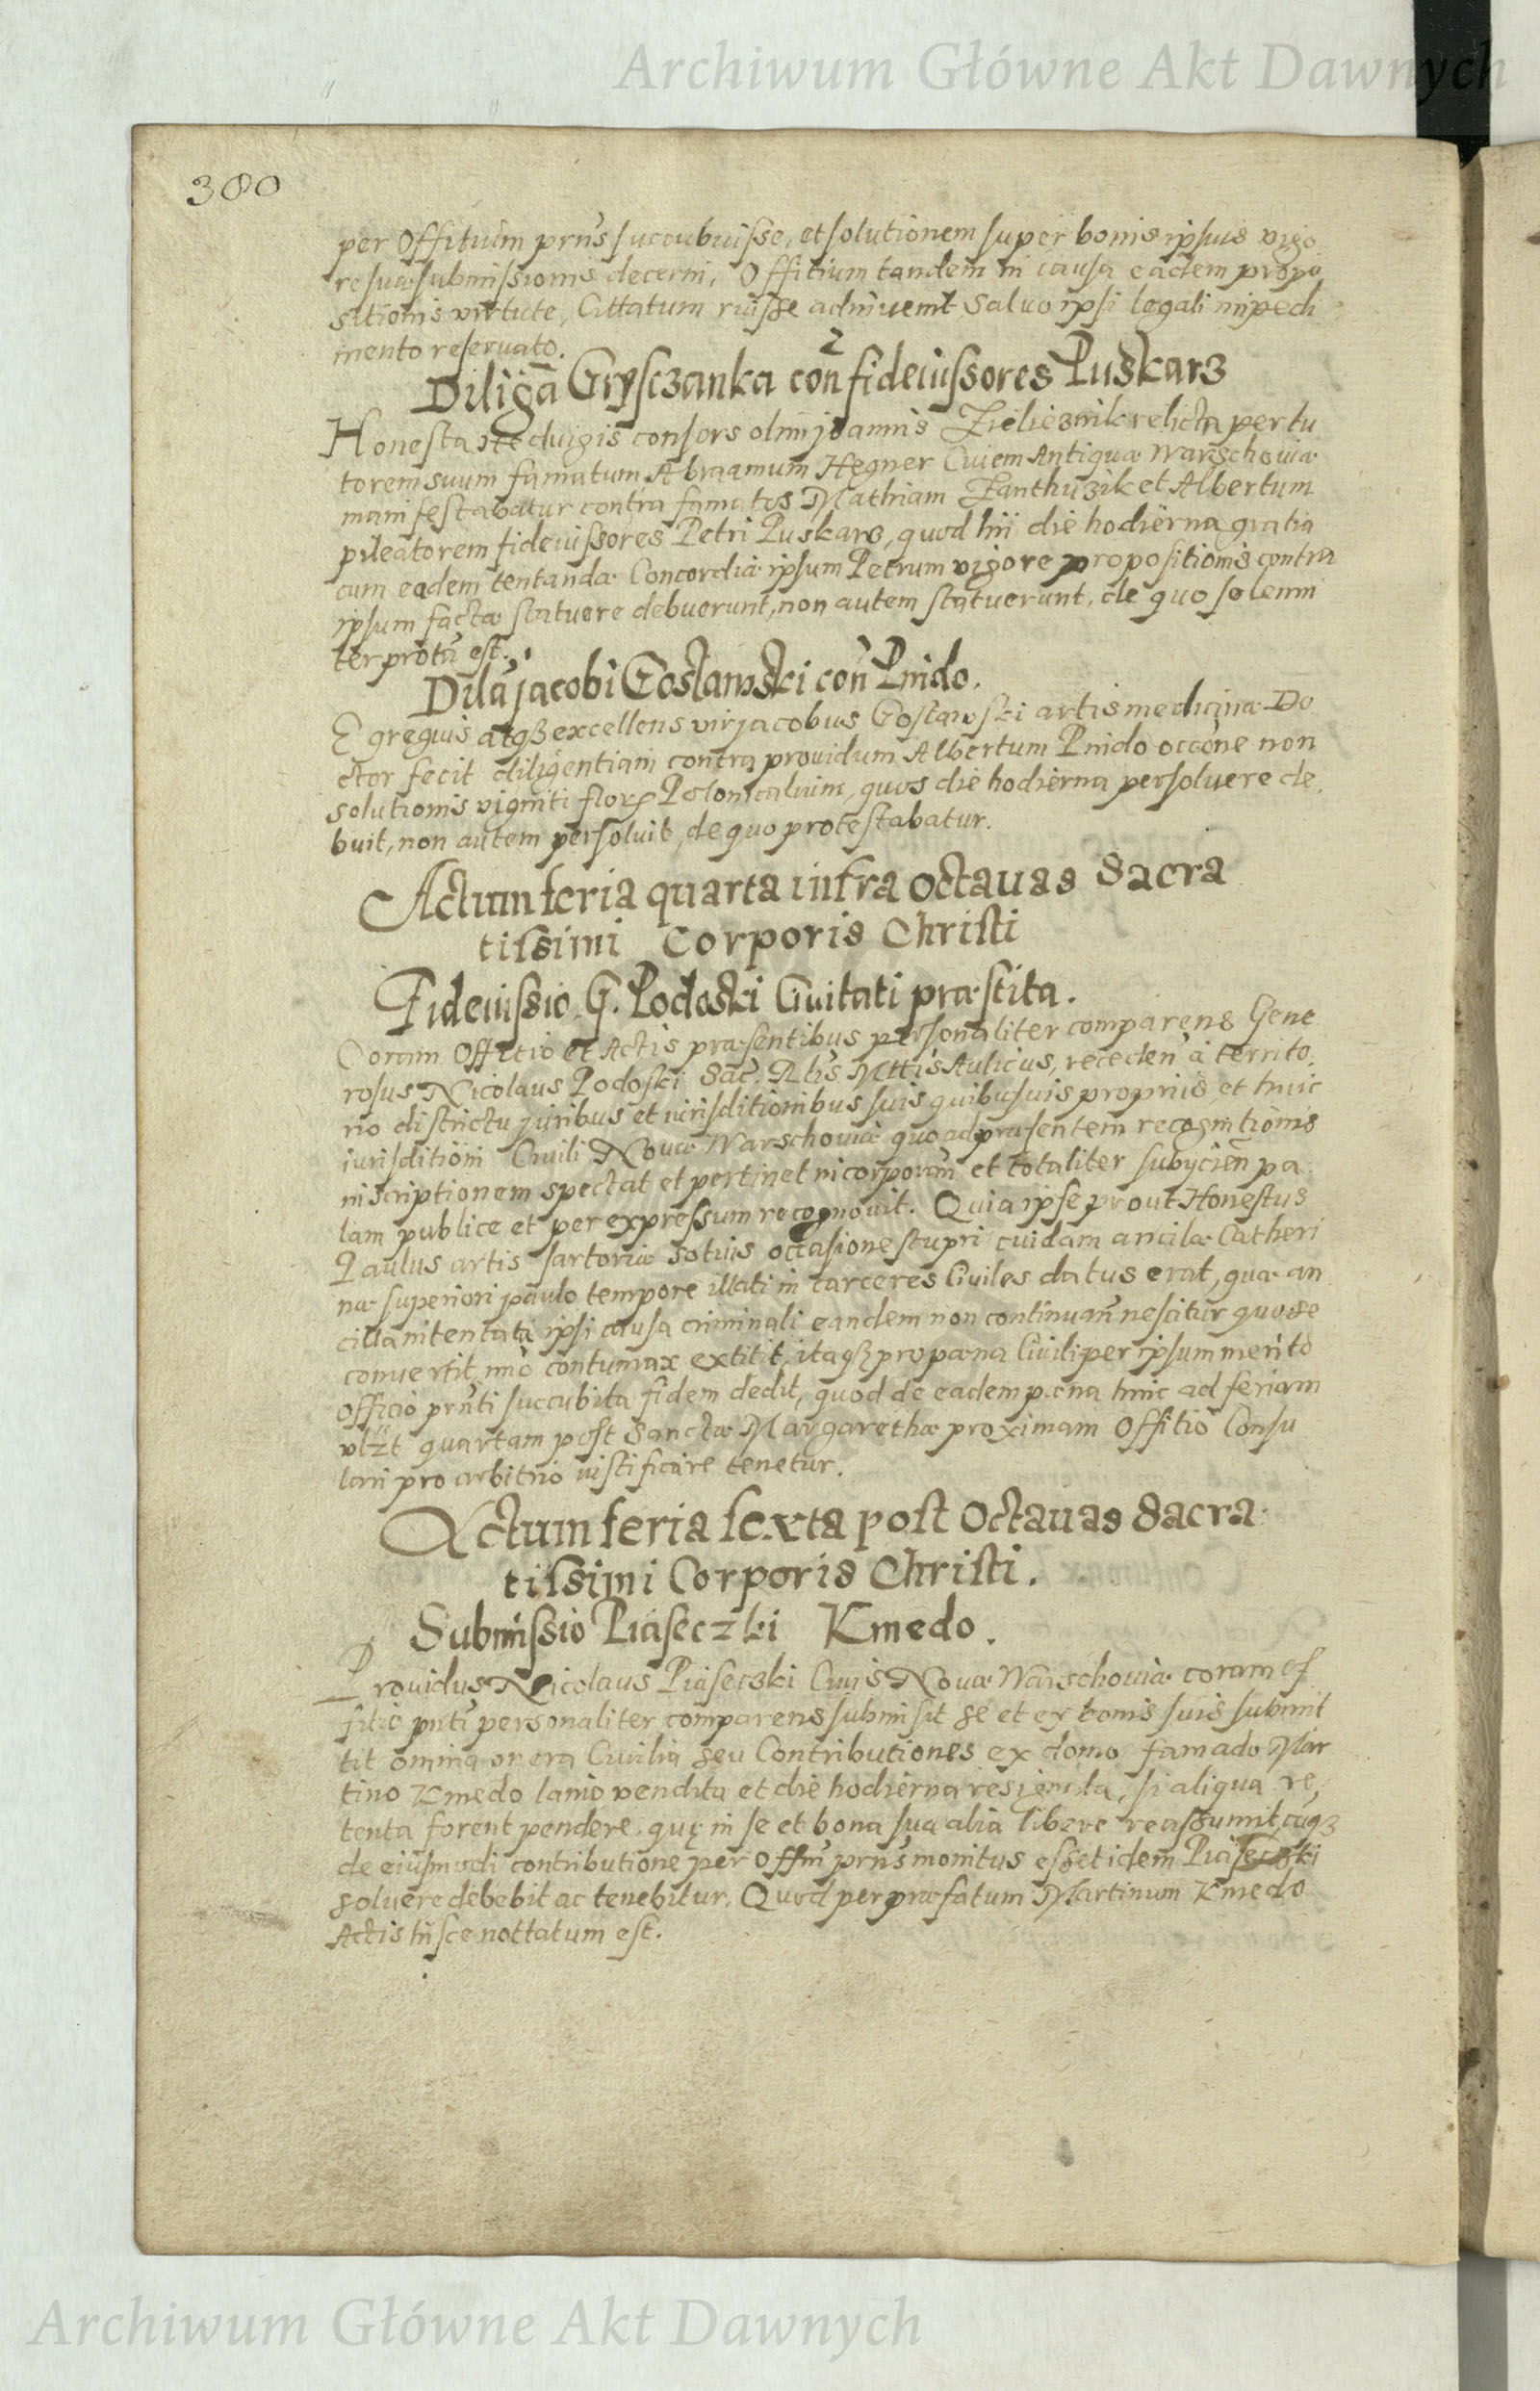 Archiwum Główne Akt Dawnych
380
per Offitium prñs succubuisse, et solutionem super bonis ipsius vigo
re suæ submissionis decerni, Offitium tandem in causa eadem propo
sitionis virtute, Cittatum ruisse adinvenit salvo ipsi legali impedi
mento reservato.
Diligã Grysczanka coñ fideiussores Puskarz
Honesta Heduigis consors olim joannis Zielieznik relicta per tu
torem suum famatum Abraamum Hegner Civem Antiquæ Warschoviæ
manifestabatur contra famatos Mathiam Zanthuzik et Albertum
pileatorem fideiussores Petri Puskarz, quod hii die hodierna gratia
cum eadem tentandæ Concordiæ ipsum Petrum vigore propositionis contra
ipsum factæ statuere debuerunt, non autem statuerunt, de quo solenni
ter protũ est.
Dilã jacobi Gostawski coñ Pnido.
Egregius atqz excellens vir jacobus Gostawski artis medicinæ Do
ctor fecit diligentiam contra providum Albertum Pnido occõne non
solutionis viginti flor Polonicalium, quos die hodierna persolvere de
buit, non autem persolvit, de quo protestabatur.
Actum feria quarta infra octavas Sacra
tissimi Corporis Christi
Fideiussio G. Podoski Civitati præstita.
Coram Offitio et Actis præsentibus personaliter comparens Gene
rosus Nicolaus Podoski Sac. R. Mttis Aulicus, receden à territo
rio districtu juribus et jurisditionibus suis quibusvis propriis et huic
jurisditioni Civili Novæ Warschoviæ quo ad præsentem recognitionis
inscriptionem spectat et pertinet incorporan et totaliter subycien pa
lam publice et per expressum recognovit. Quia ipse prout Honestus
Paulus artis sartoriæ sotius occasione stupri cuidam ancilæ Catheri
næ superiori paulo tempore illati in carceres Civiles datus erat, quæ an
cilla intentata ipsi causa criminali eandem non continuan nescitur quo se
convertit, imo contumax extitit, itaqz pro pæna Civili per ipsum merito
officio prñti succubita fidem dedit, quod de eadem pæna hinc ad feriam
vlzt quartam post Sanctæ Margarethæ proximam Offitio Consu
lari pro arbitrio iustificare tenetur.
Actum feria sexta post Octavas Sacra
tissimi Corporis Christi.
Submissio Piaseczki Kmedo.
Providus Nicolaus Piaseczki Civis Novæ Warschoviæ coram of
fitio prñti personaliter comparens submisit se et ex bonis suis submit
tit omnia onera Civilia seu Contributiones ex domo famado Mar
tino Kmedo lanio vendita et die hodierna resignata, si aliqua re
tenta forent pendere, quę in se et bona sua alia libere reassumit, cũqz
de eiusmodi contributione per Offm prñs monitus esset idem Piaseczki
solvere debebit ac tenebitur. Quod per præfatum Martinum Kmedo
Actis hisce nottatum est.
Archiwum Główne Akt Dawnych